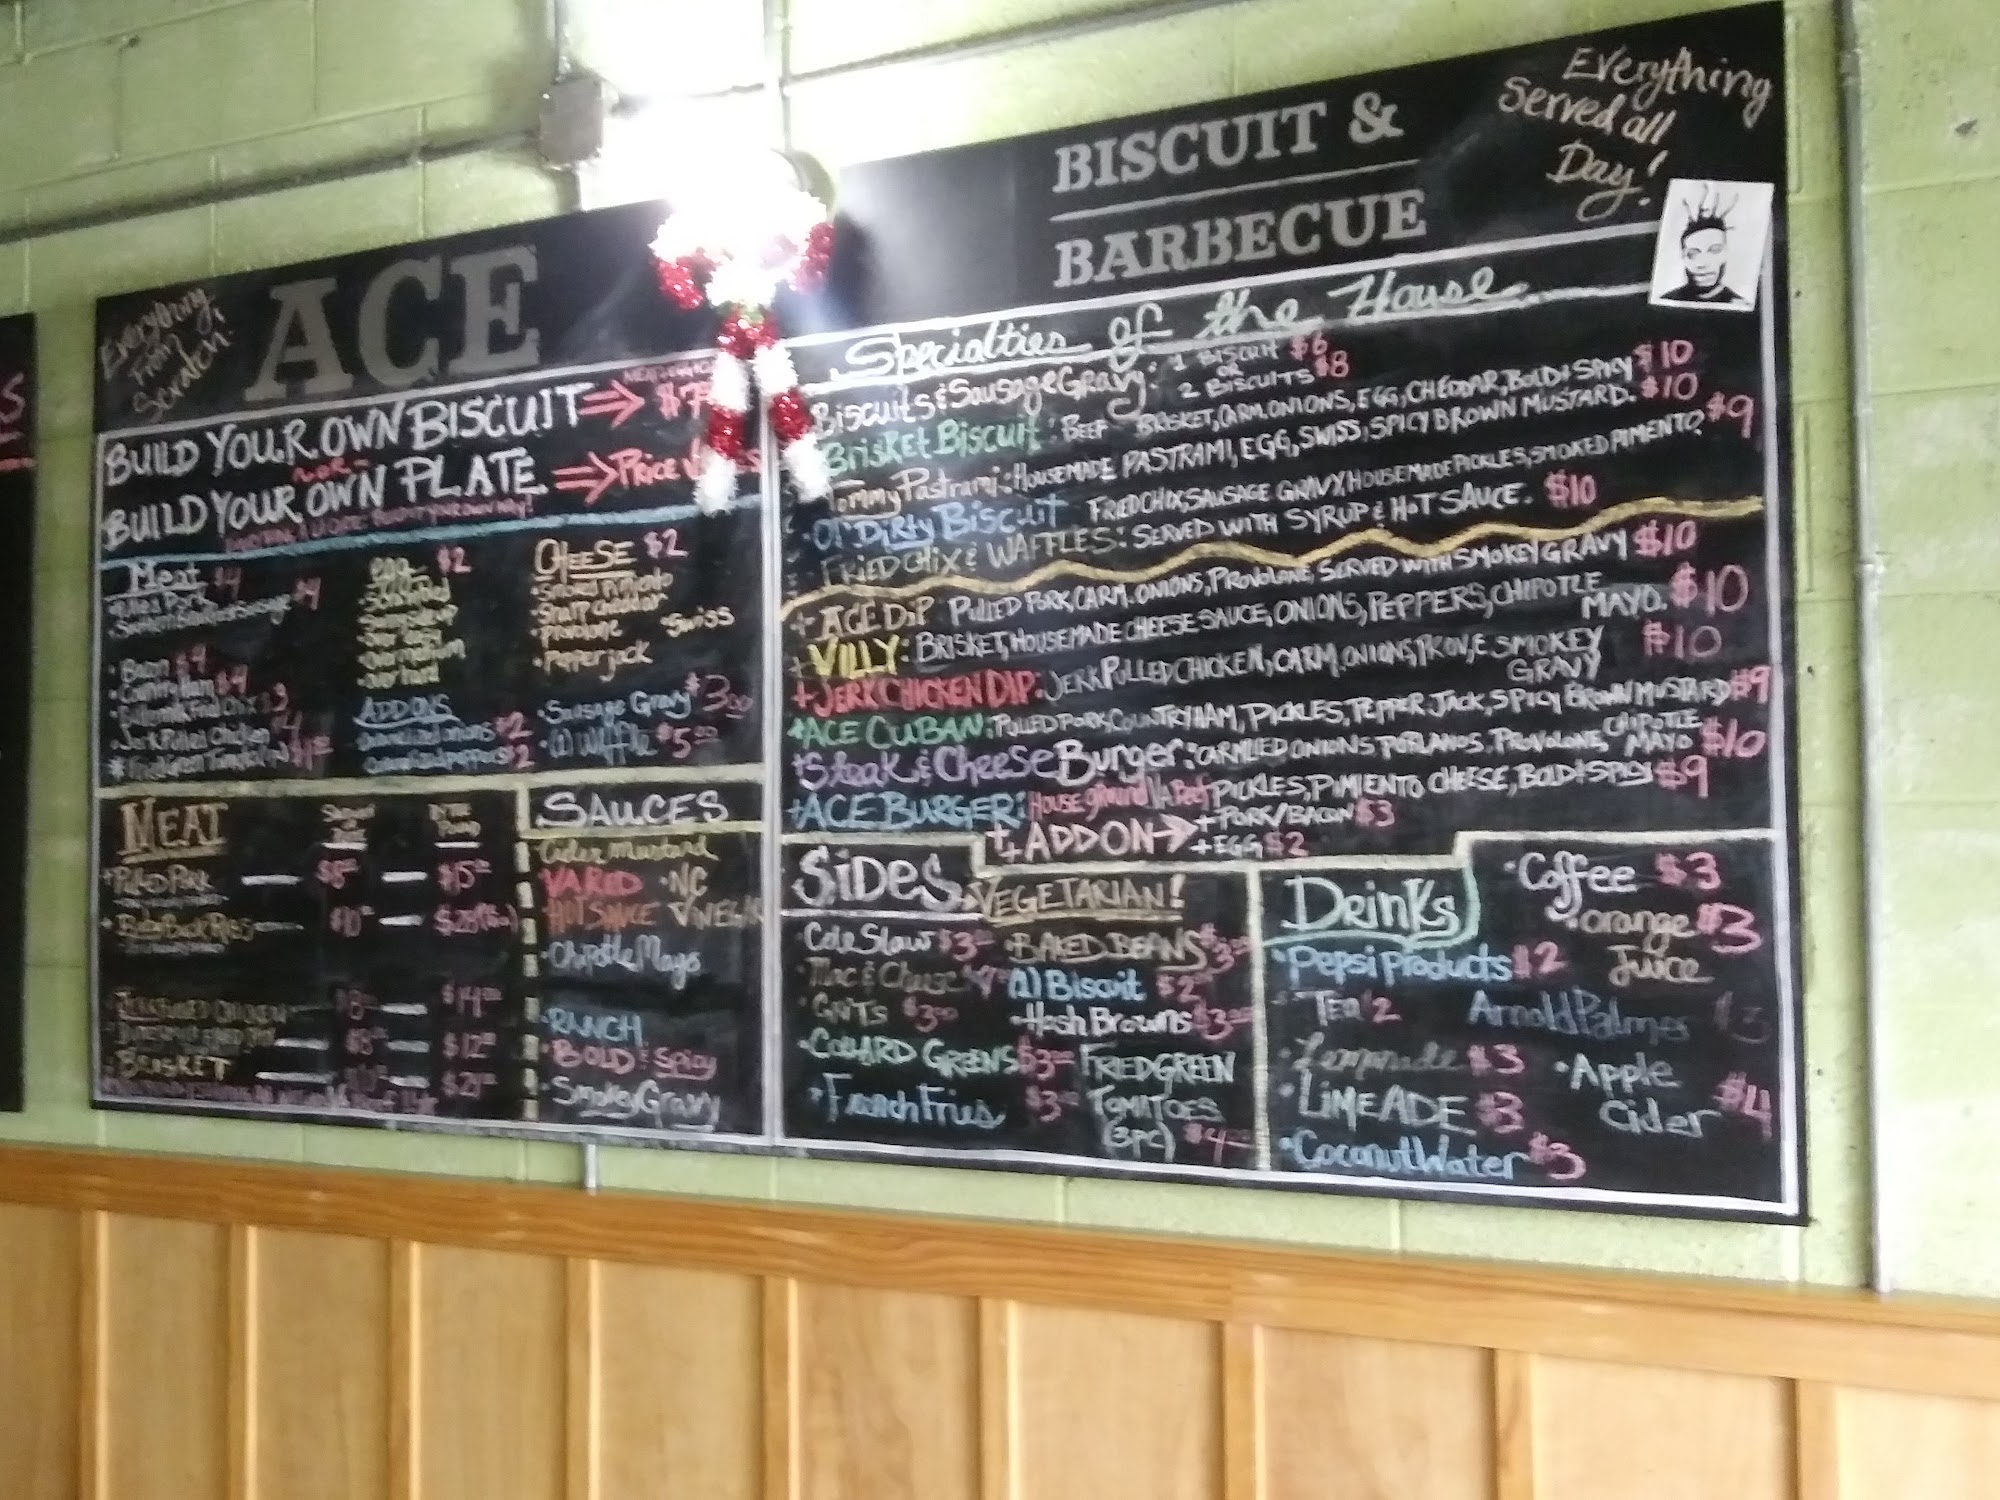 Everything
From
Scratch!
ACE
BISCUIT &
BARBECUE
Everything
Served all
Day!
BUILD YOUR OWN BISCUIT
-OR-
BUILD YOUR OWN PLATE
Meat $4
• Pulled Pork
• Bacon $4
• Country Ham $4
• Jerk Pulled Chicken $4
egg $2
• Scrambled
• Sunny side up
• Over easy
• Over medium
• Over hard
ADD ONS
CHEESE $2
• Smoked Pimiento
• Sharp cheddar
• Provolone • Swiss
• Pepper jack
• Sausage Gravy $3.00
• (1) Waffle $5.00
MEAT
Pulled Pork $8 $15
Baby Back Ribs
BRISKET
SAUCES
Cider Mustard
VA RED • NC
HOT SAUCE VINEGAR
• Chipotle Mayo
• RANCH
• BOLD & Spicy
• Smokey Gravy
Specialties of the House
Biscuits & Sausage Gravy: 1 BISCUIT $6
OR
2 BISCUITS $8
Brisket Biscuit: BEEF BRISKET, CARM. ONIONS, EGG, CHEDDAR, BOLD & SPICY $10
Tommy Pastrami: HOUSEMADE PASTRAMI, EGG, SWISS, SPICY BROWN MUSTARD. $10
• Ol' Dirty Biscuit FRIED CHIX, SAUSAGE GRAVY, HOUSEMADE PICKLES, SMOKED PIMENTO. $9
• FRIED CHIX & WAFFLES: SERVED WITH SYRUP & HOT SAUCE. $10
+ ACE DIP PULLED PORK, CARM. ONIONS, PROVOLONE, SERVED WITH SMOKEY GRAVY $10
+ VILLY: BRISKET, HOUSEMADE CHEESE SAUCE, ONIONS, PEPPERS, CHIPOTLE
MAYO. $10
+ JERK CHICKEN DIP: JERK PULLED CHICKEN, CARM. ONIONS, PROV, & SMOKEY
GRAVY $10
+ ACE CUBAN: PULLED PORK, COUNTRY HAM, PICKLES, PEPPER JACK, SPICY BROWN MUSTARD $9
+ Steak & Cheese Burger: CARMLIZED ONIONS, POBLANOS, PROVOLONE, CHIPOTLE
MAYO $10
+ ACE BURGER: House ground VA Beef PICKLES, PIMIENTO CHEESE, BOLD & SPICY $9
+ ADD ON → + PORK/BACON $3
+ EGG $2
SIDES
VEGETARIAN!
• Cole Slaw $3
• Mac & Cheese
• GRITS $3
• COLLARD GREENS $3
• French Fries $3
• BAKED BEANS $3
(1) Biscuit $2
• Hash Browns $3
FRIED GREEN
TOMATOES
(3PC) $4
Drinks
• Coffee $3
• Orange $3
Juice
• Pepsi Products $2
• Tea $2
Arnold Palmer $3
• Lemonade $3
• LIMEADE $3
• Coconut Water $3
• Apple
Cider $4